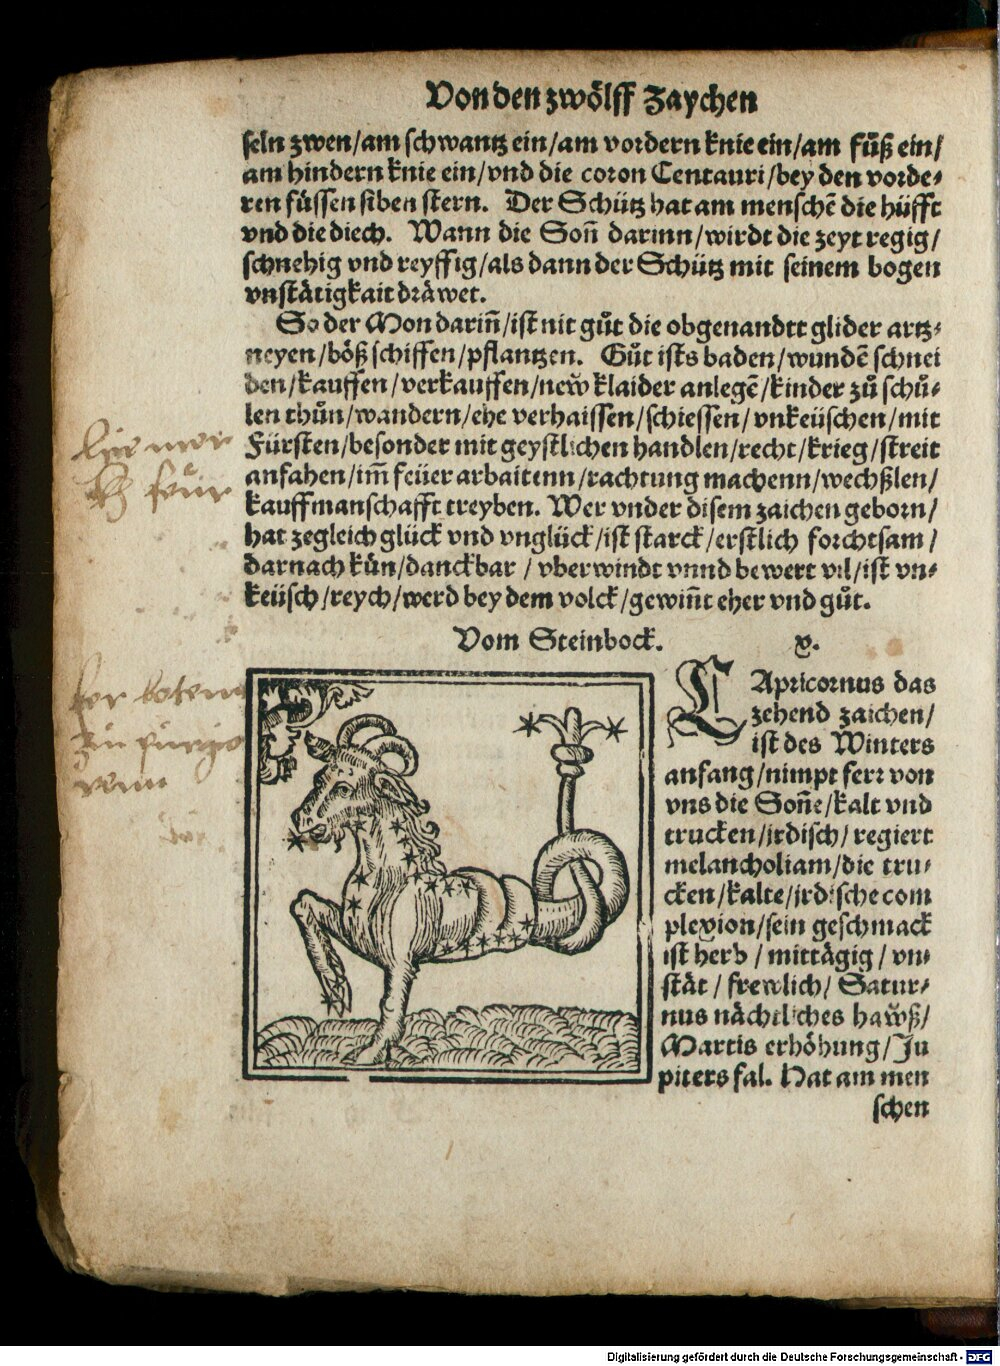 Von den zwölff Zaychen
seln zwen/am schwantz ein/am vordern knie ein/am fůß ein/
am hindern knie ein/vnd die coron Centauri/bey den vorde⸗
ren füssen siben stern. Der Schütz hat am menschē die hüfft
vnd die diech. Wann die Soñ darinn/wirdt die zeyt regig/
schnehig vnd reyffig/als dann der Schütz mit seinem bogen
vnstätigkait dräwet.
So der Mon dariñ/ist nit gůt die obgenandtt glider artz⸗
neyen/böß schiffen/pflantzen. Gůt ists baden/wundē schnei
den/kauffen/verkauffen/new klaider anlegē/kinder zů schů⸗
len thůn/wandern/ehe verhaissen/schiessen/vnkeüschen/mit
Fürsten/besonder mit geystlichen handlen/recht/krieg/streit
anfahen/im̃ feüer arbaitenn/rachtung machenn/wechßlen/
kauffmanschafft treyben. Wer vnder disem zaichen geborn/
hat zegleich glück vnd vnglück/ist starck/erstlich forchtsam/
darnach kün/danckbar/vberwindt vnnd bewert vil/ist vn⸗
keüsch/reych/werd bey dem volck/gewiñt eher vnd gůt.
Vom Steinbock. x.
CApricornus das
zehend zaichen/
ist des Winters
anfang/nimpt ferr von
vns die Soñe/kalt vnd
trucken/irdisch/regiert
melancholiam/die tru⸗
cken/kalte/irdische com
plexion/sein geschmack
ist herb/mittägig/vn⸗
stät/frewlich/Satur⸗
nus nächtliches hawß/
Martis erhöhung/Ju
piters fal. Hat am men
schen
feür
Digitalisierung gefördert durch die Deutsche Forschungsgemeinschaft - DFG